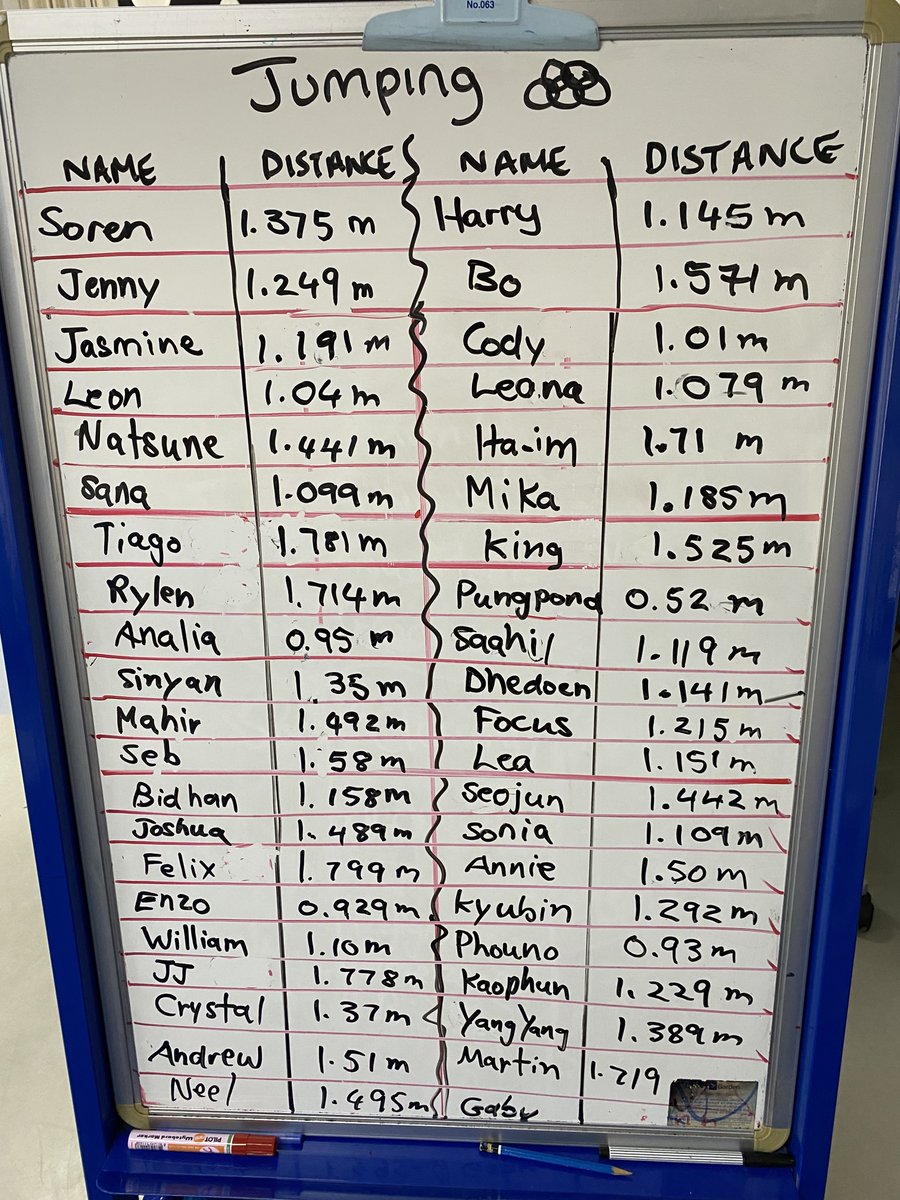 No.063
Jumping
NAME DISTANCE NAME DISTANCE
Soren 1.375 m Harry 1.145 m
Jenny 1.249 m Bo 1.571 m
Jasmine 1.191 m Cody 1.01 m
Leon 1.04 m Leona 1.079 m
Natsune 1.441 m Ha-im 1.71 m
Sana 1.099 m Mika 1.185 m
Tiago 1.781 m King 1.525 m
Rylen 1.714 m Pungpond 0.52 m
Analia 0.95 m Saahil 1.119 m
Sinyan 1.35 m Dhedoen 1.141 m
Mahir 1.492 m Focus 1.215 m
Seb 1.58 m Lea 1.151 m
Bidhan 1.158 m Seojun 1.442 m
Joshua 1.489 m Sonia 1.109 m
Felix 1.799 m Annie 1.50 m
Enzo 0.929 m Kyubin 1.292 m
William 1.10 m Phouno 0.93 m
JJ 1.778 m Kaophun 1.229 m
Crystal 1.37 m Yang Yang 1.389 m
Andrew 1.51 m Martin 1.219
Neel 1.495 m Gaby
PILOT Wyteboard Marker